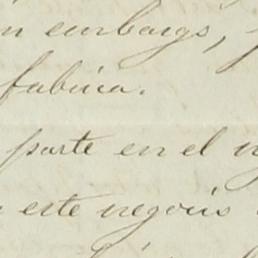 n embargo,
fabrica.
parte en el n
este negocio